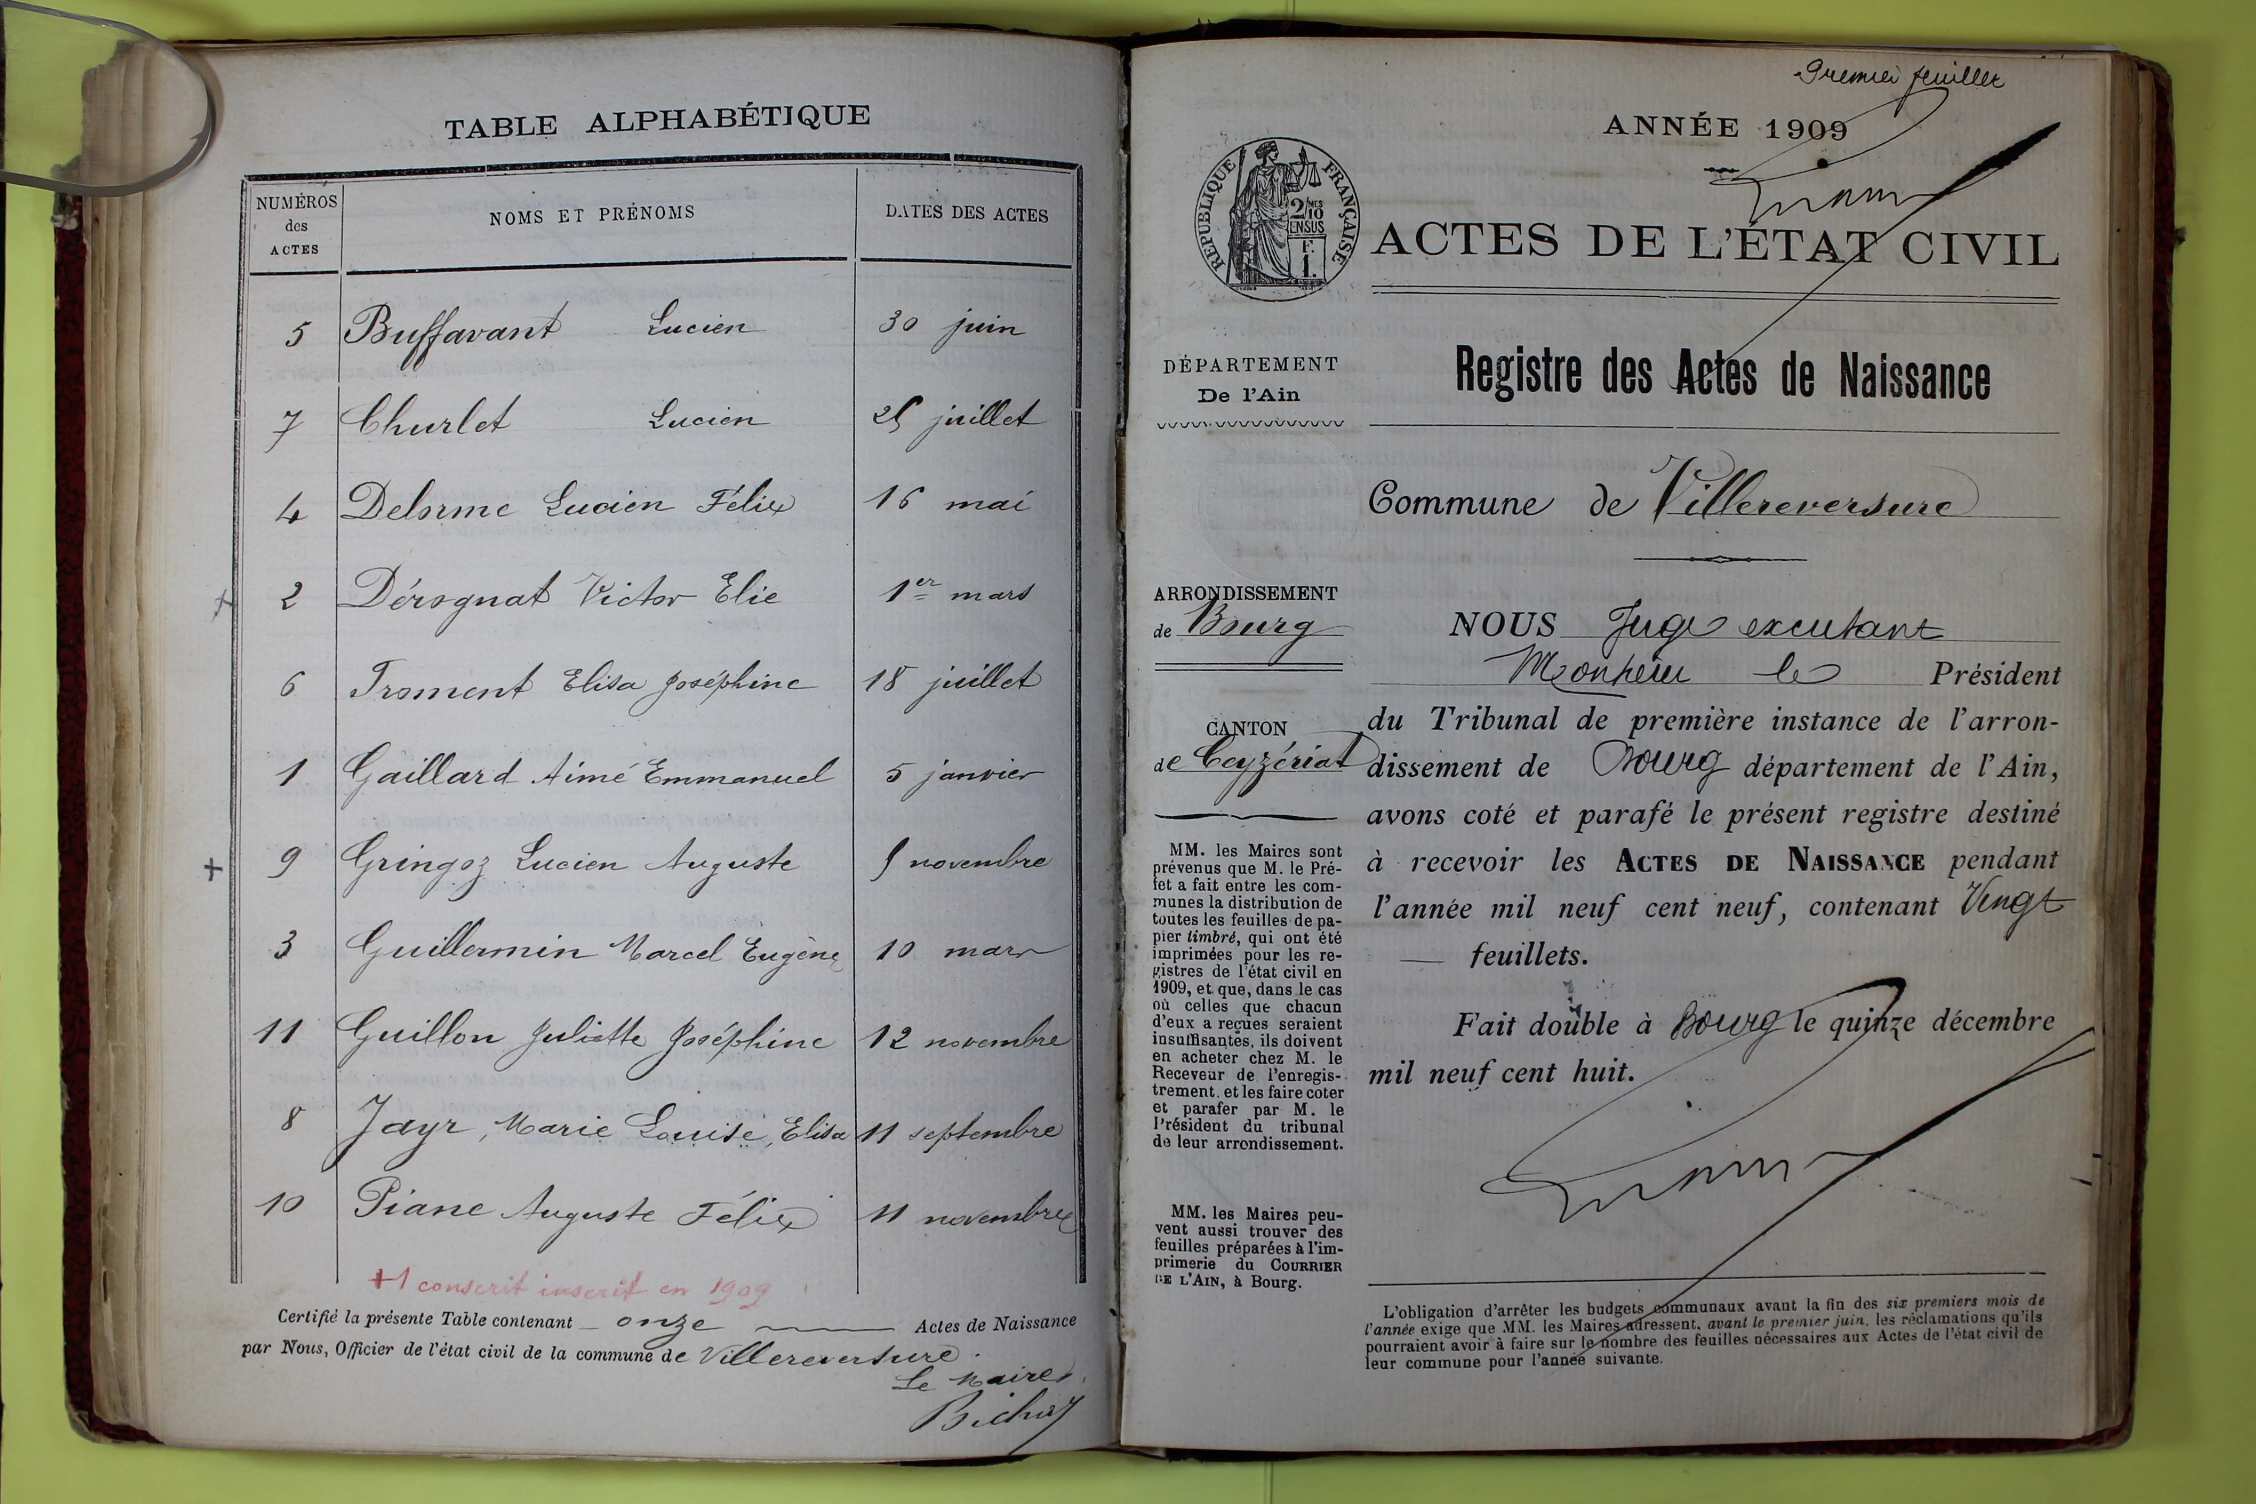 TABLE ALPHABÉTIQUE
NUMÉROS des ACTES NOMS ET PRÉNOMS DATES DES ACTES
5 Buffavant Lucien 30 juin
7 Churlet Lucien 25 juillet
4 Delorme Lucien Félix 16 mai
2 Dérognat Victor Elie 1er mars
6 Froment Elisa Joséphine 18 juillet
1 Gaillard Aimé Emmanuel 5 janvier
+ 9 Gringoz Lucien Auguste 5 novembre
3 Guillermin Marcel Eugène 10 mars
11 Guillon Juliette Joséphine 12 novembre
8 Jayr, Marie Louise, Elisa 11 septembre
10 Piane Auguste Félix 11 novembre
+1 conscrit inscrit en 1909
Certifié la présente Table contenant onze Actes de Naissance
par Nous, Officier de l'état civil de la commune de Villereversure.
Le Maire,
Premier feuillet
ANNÉE 1909
RÉPUBLIQUE FRANÇAISE
2/10 MES
EN SUS
F.
1.
ACTES DE L'ÉTAT CIVIL
DÉPARTEMENT
De l'Ain
Registre des Actes de Naissance
Commune de Villereversure
ARRONDISSEMENT
de Bourg
CANTON
de Ceyzériat
MM. les Maires sont
prévenus que M. le Pré-
fet a fait entre les com-
munes la distribution de
toutes les feuilles de pa-
pier timbré, qui ont été
imprimées pour les re-
gistres de l'état civil en
1909, et que, dans le cas
où celles que chacun
d'eux a reçues seraient
insuffisantes, ils doivent
en acheter chez M. le
Receveur de l'enregis-
trement, et les faire coter
et parafer par M. le
Président du tribunal
de leur arrondissement.
MM. les Maires peu-
vent aussi trouver des
feuilles préparées à l'im-
primerie du COURRIER
DE L'AIN, à Bourg.
NOUS Juge excutant
le Président
du Tribunal de première instance de l'arron-
dissement de Bourg département de l'Ain,
avons coté et parafé le présent registre destiné
à recevoir les ACTES DE NAISSANCE pendant
l'année mil neuf cent neuf, contenant Vingt
— feuillets.
Fait double à Bourg le quinze décembre
mil neuf cent huit.
L'obligation d'arrêter les budgets communaux avant la fin des six premiers mois de
l'année exige que MM. les Maires adressent, avant le premier juin, les réclamations qu'ils
pourraient avoir à faire sur le nombre des feuilles nécessaires aux Actes de l'état civil de
leur commune pour l'année suivante.